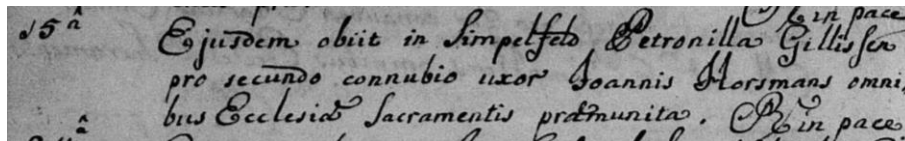 R in pace
15â Ejusdem obiit in Simpelfeld Petronilla Gillissen
pro secundo connubio uxor Joannis Horsmans omni,
bus Ecclesiæ Sacramentis præmunita. R in pace